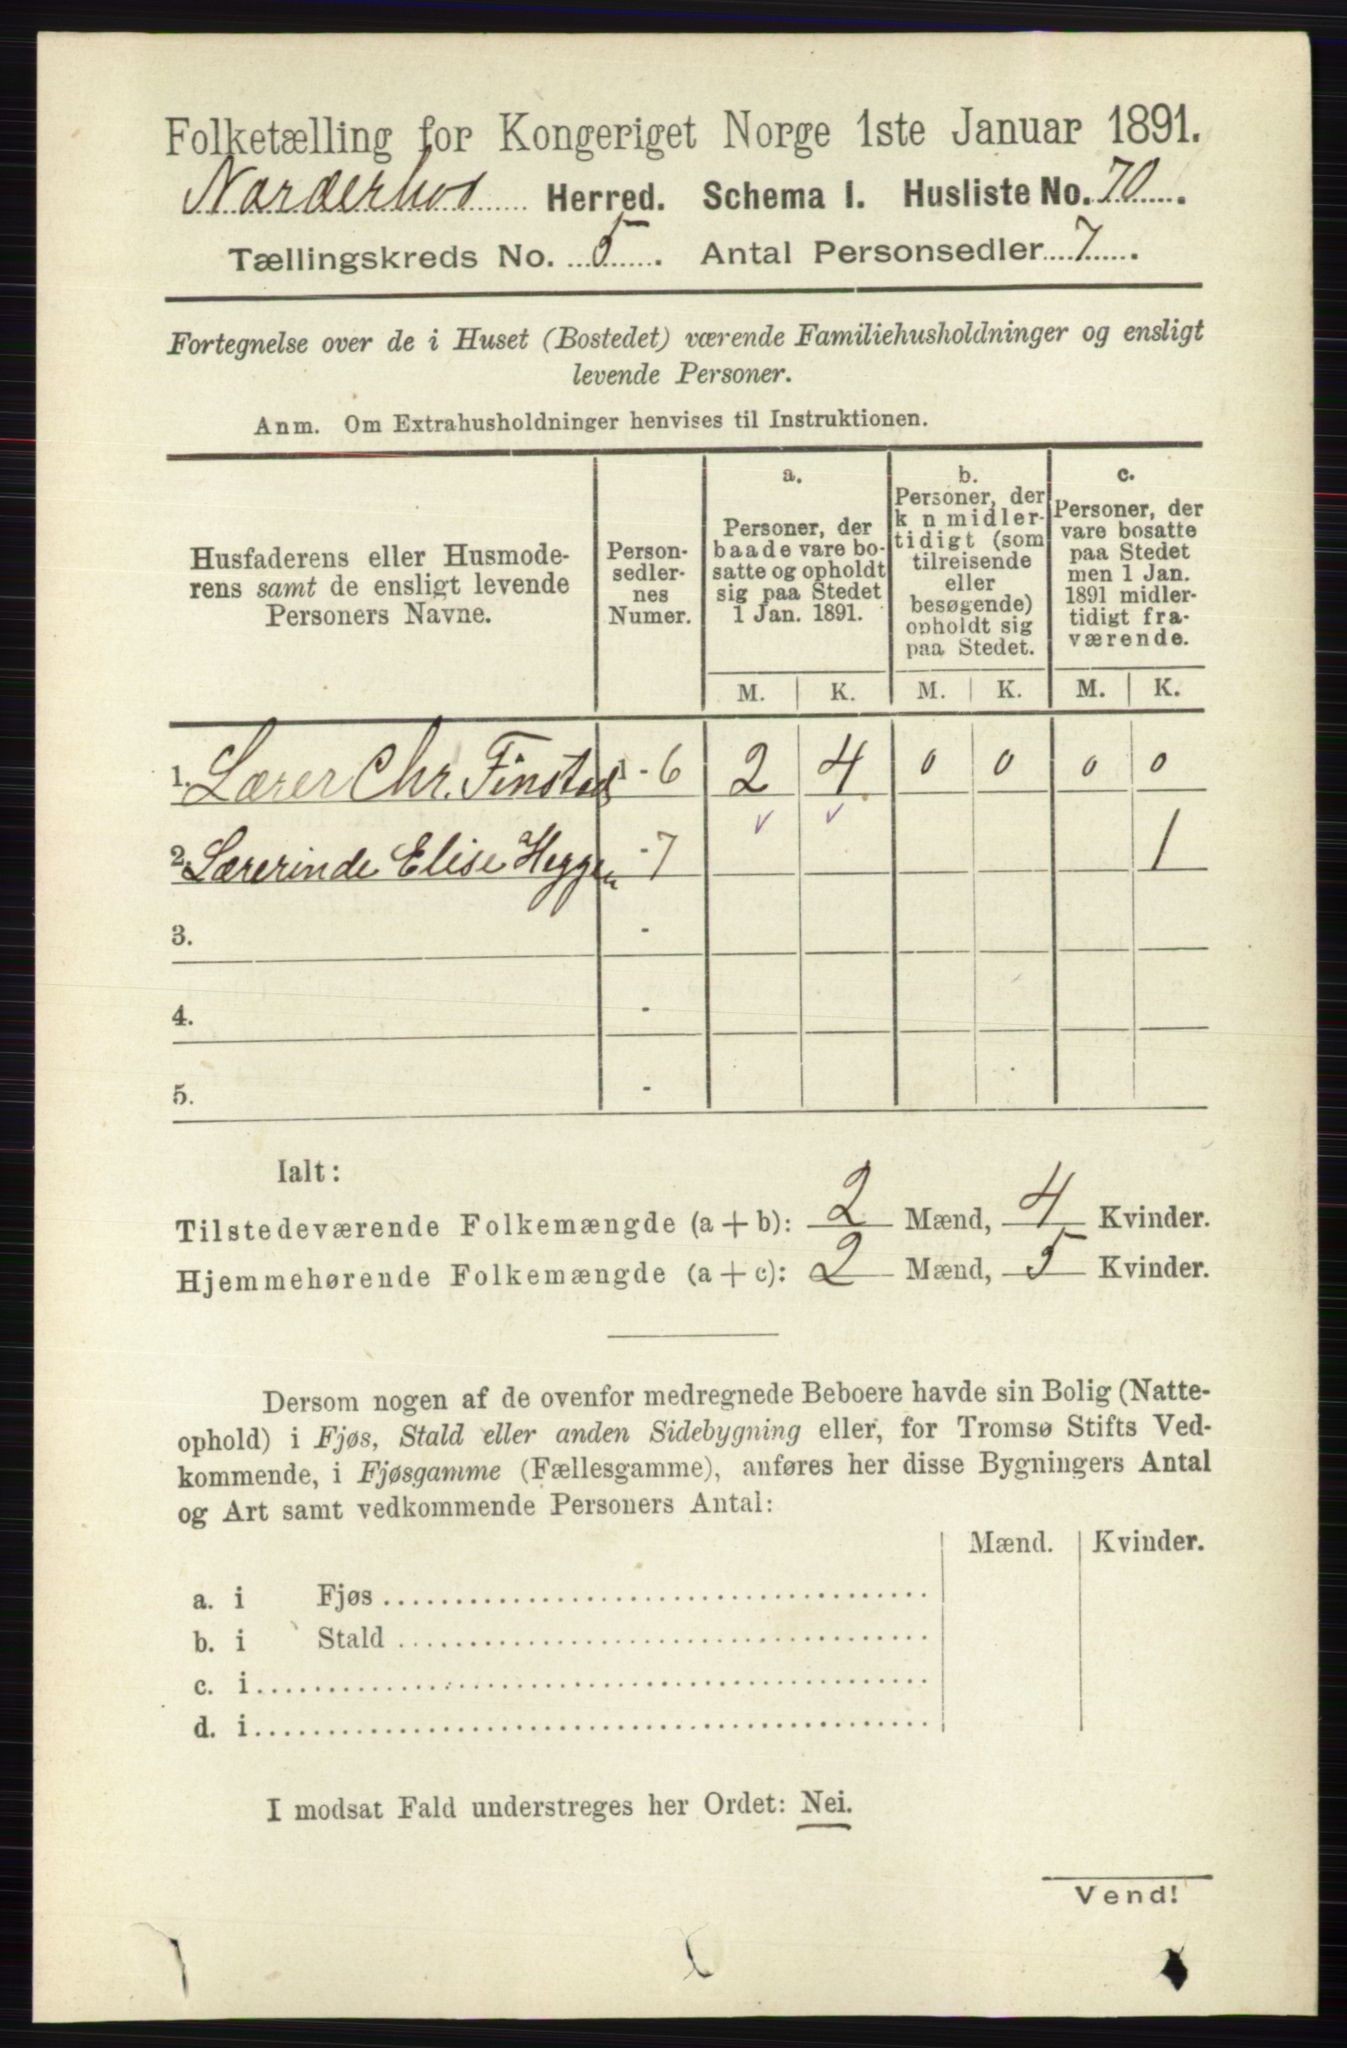 Folketælling for Kongeriget Norge 1ste Januar 1891.
Narderhov Herred. Schema I. Husliste No. 70.
Tællingskreds No. 5. Antal Personsedler 7.
Fortegnelse over de i Huset (Bostedet) værende Familiehusholdninger og ensligt
levende Personer.
Anm. Om Extrahusholdninger henvises til Instruktionen.
Husfaderens eller Husmode-
rens samt de ensligt levende
Personers Navne.
Person-
sedler-
nes
Numer.
a.
Personer, der
baade vare bo-
satte og opholdt
sig paa Stedet
1 Jan. 1891.
b.
Personer, der
k n midler-
tidigt (som
tilreisende
eller
besøgende)
opholdt sig
paa Stedet.
c.
Personer, der
vare bosatte
paa Stedet
men 1 Jan.
1891 midler-
tidigt fra-
værende.
M. K. M. K. M. K.
1. Lærer Chr. Finstad 1 - 6 2 4 0 0 0 0
2. Lærerinde Elise Heggen - 7 1
3. -
4. -
5. -
Ialt:
Tilstedeværende Folkemængde (a + b): 2 Mænd, 4 Kvinder.
Hjemmehørende Folkemængde (a + c): 2 Mænd, 5 Kvinder.
Dersom nogen af de ovenfor medregnede Beboere havde sin Bolig (Natte-
ophold) i Fjøs, Stald eller anden Sidebygning eller, for Tromsø Stifts Ved-
kommende, i Fjøsgamme (Fællesgamme), anføres her disse Bygningers Antal
og Art samt vedkommende Personers Antal:
Mænd. Kvinder.
a. i Fjøs
b. i Stald
c. i
d. i
I modsat Fald understreges her Ordet: Nei.
Vend!